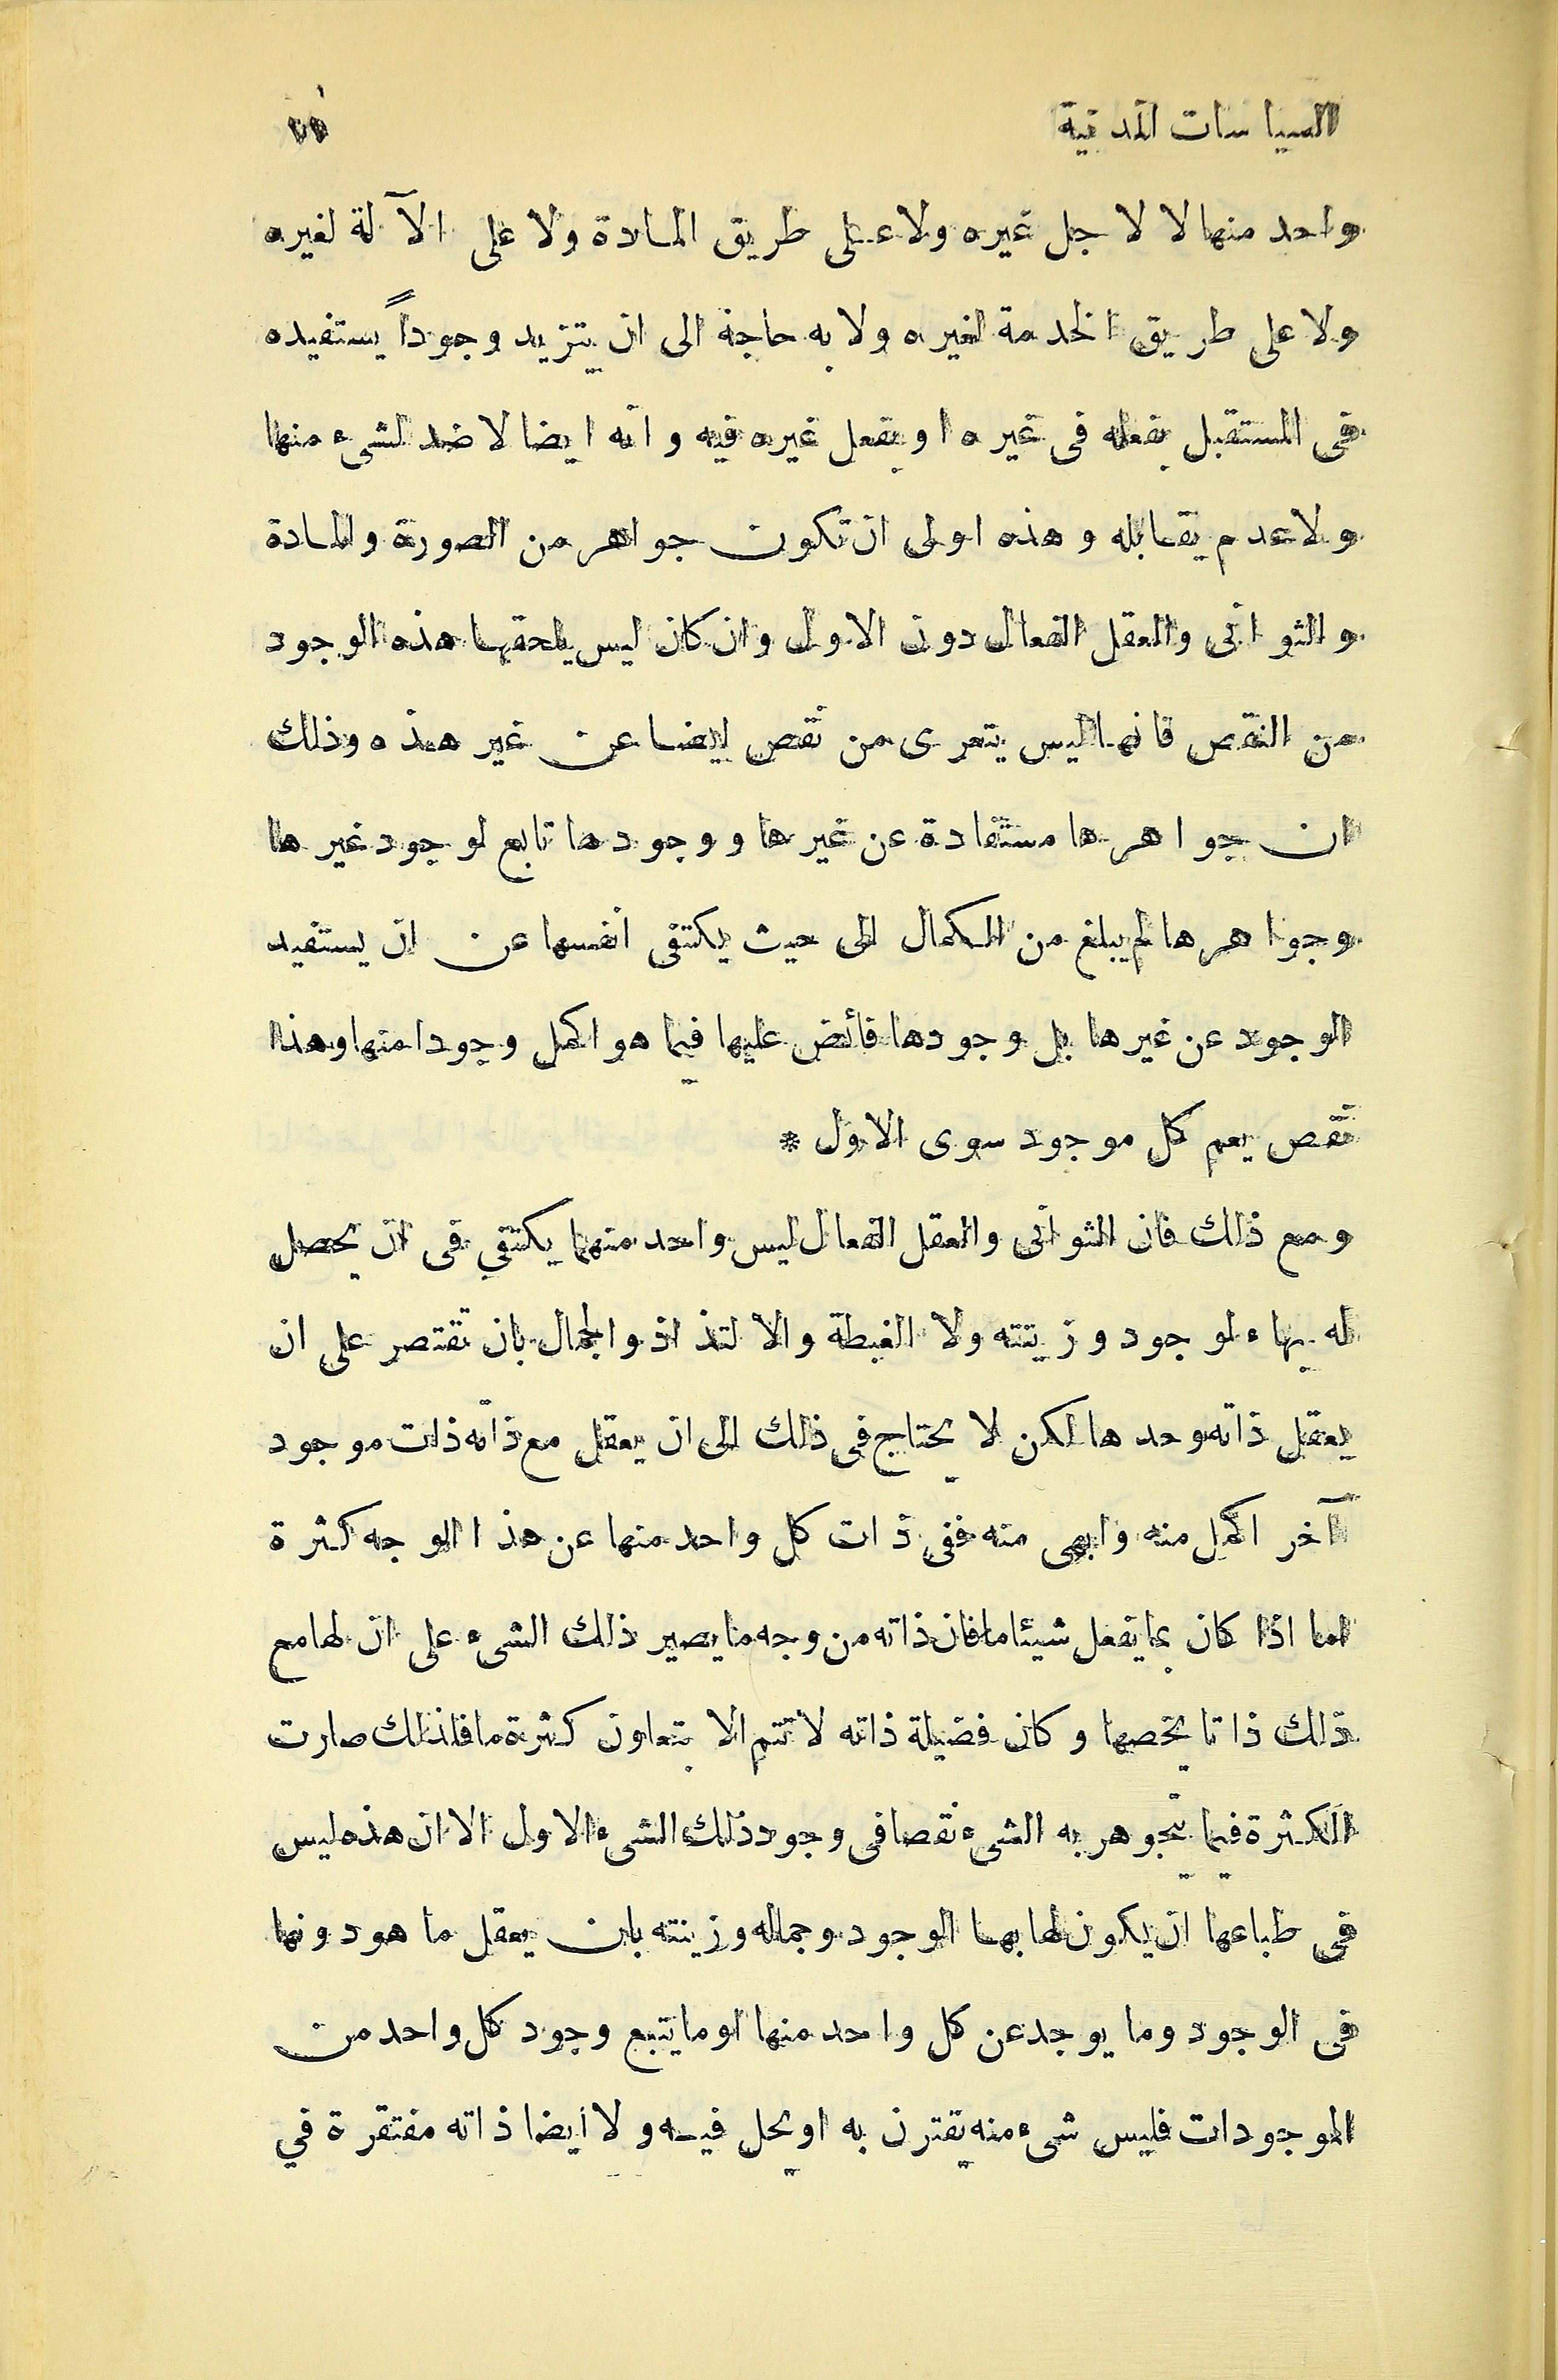 السياسات المدنية
واحد منها لا لاجل غيره ولا على طريق المادة ولا على الآلة لغيره
ولا على طريق الخدمة لغيره ولا به حاجة الى ان يتزيد وجوداً يستفيده
فى المستقبل بفعله فى غيره او بفعل غيره فيه وانه ايضا لا ضد لشىء منها
ولا عدم يقابله وهذه اولى ان تكون جواهر من الصورة والمادة
والثوانى والعقل الفعال دون الاول وان كان ليس يلحقها هذه الوجود
من النقص فانها ليس يتعرى من نقص ايضا عن غير هذه وذلك
ان جواهرها مستفادة عن غيرها ووجودها تابع لوجود غيرها
وجواهرها لم يبلغ من الكمال الى حيث يكتفى انفسها عن ان يستفيد
الوجود عن غيرها بل وجودها فائض عليها فيما هو اكمل وجودا منها وهذا
نقص يعم كل موجود سوى الاول *
ومع ذلك فان الثوانى والعقل الفعال ليس واحد منهما يكتفي فى ان يحصل
له بهاء لوجود وزينته ولا الغبطة والالتذاذ والجمال بان تقتصر على ان
يعقل ذاته وحدها لكن لا يحتاج فى ذلك الى ان يعقل مع ذاته ذات موجود
آخر اكمل منه وابهى منه ففى ذات كل واحد منها عن هذا الوجه كثرة
اما اذا كان بما يفعل شيئا ما فان ذاته من وجه ما يصير ذلك الشىء على ان لها مع
ذلك ذاتا يخصها وكان فضيلة ذاته لا تتم الا بتعاون كثرة ما فلذلك صارت
الكثرة فيما يتجوهر به الشىء نقصا فى وجود ذلك الشىء الاول الا ان هذه ليس
فى طباعها ان يكون لها بها الوجود وجماله وزينته بان يعقل ما هو دونها
فى الوجود وما يوجد عن كل واحد منها او ما يتبع وجود كل واحد من
الموجودات فليس شىء منه يقترن به او يحل فيه ولا أيضا ذاته مفتقرة في